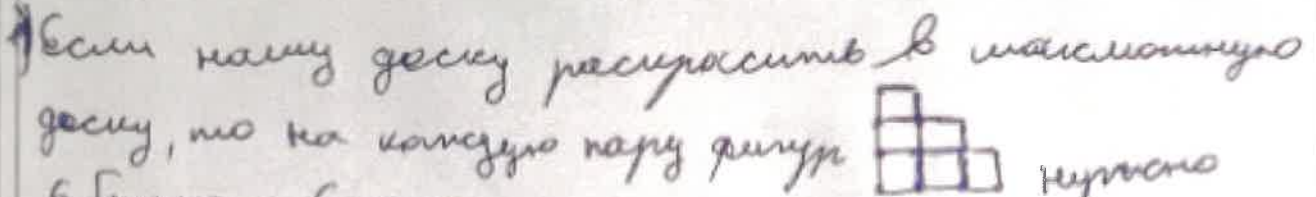 1) Если нашу доску раскрасить в шахматную
доску, то на каждую пару фигур нужно